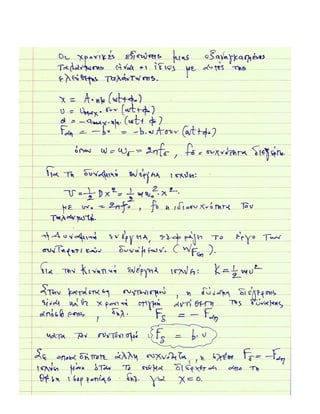 Οι χρονικές εξισώσεις μιας εξαναγκασμένης
ταλάντωσης είναι οι ίδιες με αυτές της
ελεύθερης ταλάντωσης.
x = A·ημ(ωt+φ₀)
υ = υmax·συν(ωt+φ₀)
α = -αmax·ημ(ωt+φ₀)
Fαπ = -b·υ = -b·ωAσυν(ωt+φ₀)
όπου ω = ωδ = 2πfδ, fδ = συχνότητα διεγέρτη.
Για τη δυναμική ενέργεια ισχύει:
U = ½Dx² = ½mω₀²·x²
με ω₀ = 2πf₀, f₀ η ιδιοσυχνότητα του
ταλαντωτή.
Η δυναμική ενέργεια, εκφράζει το έργο των
συντηρητικών δυνάμεων. (WFεπ).
Για την κινητική ενέργεια ισχύει: K = ½mυ²
Στην κατάσταση συντονισμού, η δύναμη διέγερσης
είναι κάθε χρονική στιγμή αντίθετη της δύναμης
απόσβεσης, δηλ. Fδ = -Fαπ
κατά τον συντονισμό: Fδ = b·υ
Σε οποιαδήποτε άλλη συχνότητα, η σχέση Fδ = -Fαπ
ισχύει μόνο όταν το σώμα διέρχεται από τη
θέση ισορροπίας δηλ. για x=0.